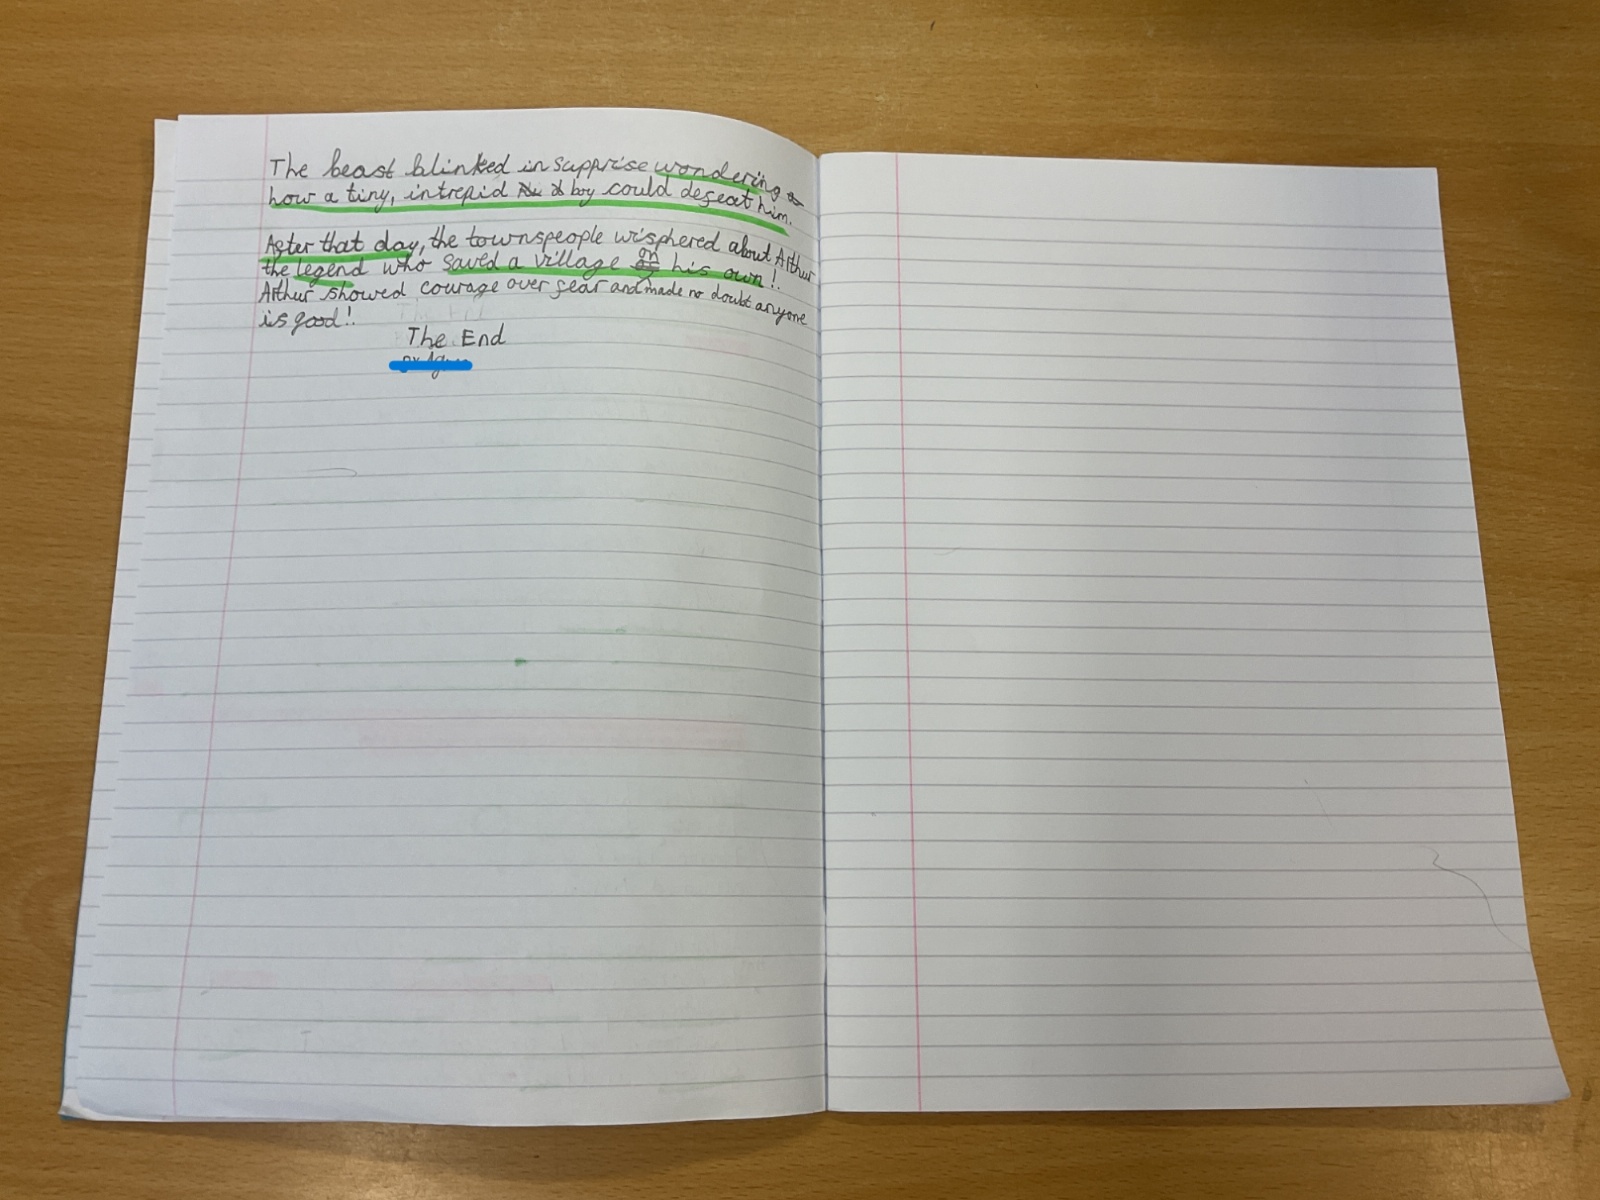 The beast blinked in supprise wondering
how a tiny, intrepid boy could defeat him.
After that day, the townspeople wisphered about Arthur
the legend who saved a village on his own!
Arthur showed courage over fear and made no doubt anyone
is good!
The End